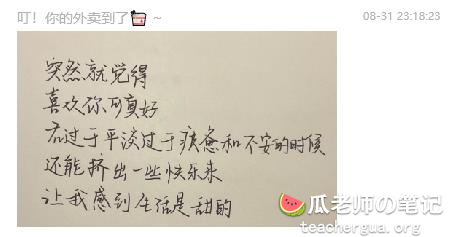 叮！你的外卖到了🧋~
08-31 23:18:23
突然就觉得
喜欢你可真好
在过于平淡过于疲惫和不安的时候
还能挤出一些快乐来
让我感到生活是甜的
瓜老师の笔记
teachergua.org